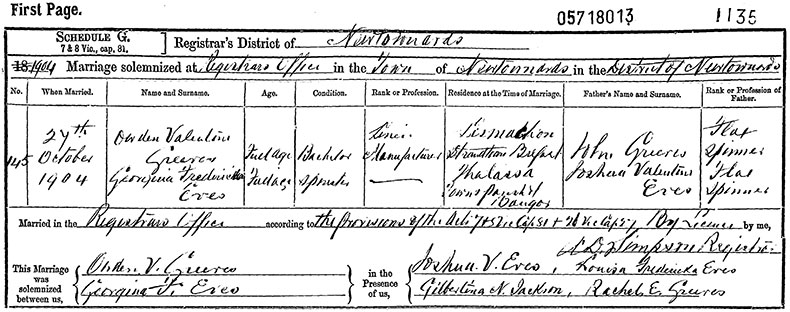 First Page.
05718013 1135
SCHEDULE G.
7 & 8 Vic., cap. 81.
Registrar's District of Newtownards
18 1904 Marriage solemnized at Registrars Office in the Town of Newtownards in the District of Newtownards
No. When Married. Name and Surname. Age. Condition. Rank or Profession. Residence at the Time of Marriage. Father's Name and Surname. Rank or Profession of Father.
145 27th October 1904
Owden Valentine Greeves Full age Bachelor Linen Manufacturer Strandtown Belfast John Greeves Flax Spinner
Georgina Fredericka Eves Full age Spinster — Thalassa Bangor Joshua Valentine Eves Flax Spinner
Married in the Registrars Office according to the provisions of the Acts 7 & 8 Vic Cap 81 + 26 Vic Cap 27 By License by me,
Simpson Registrar
This Marriage was solemnized between us,
Owden V. Greeves
Georgina F. Eves
in the Presence of us,
Joshua V. Eves, Louisa Fredericka Eves
Gilbertina N. Jackson, Rachel E. Greeves